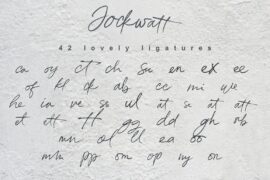 Jockwatt
42 lovely ligatures
ca oy ct ch su en ex ee
of kl ck ab cc mi we
he in ve so ul at si at att
et ett tt gg dd gh rb
mn ol ll ea oo
mm pp om op ny on